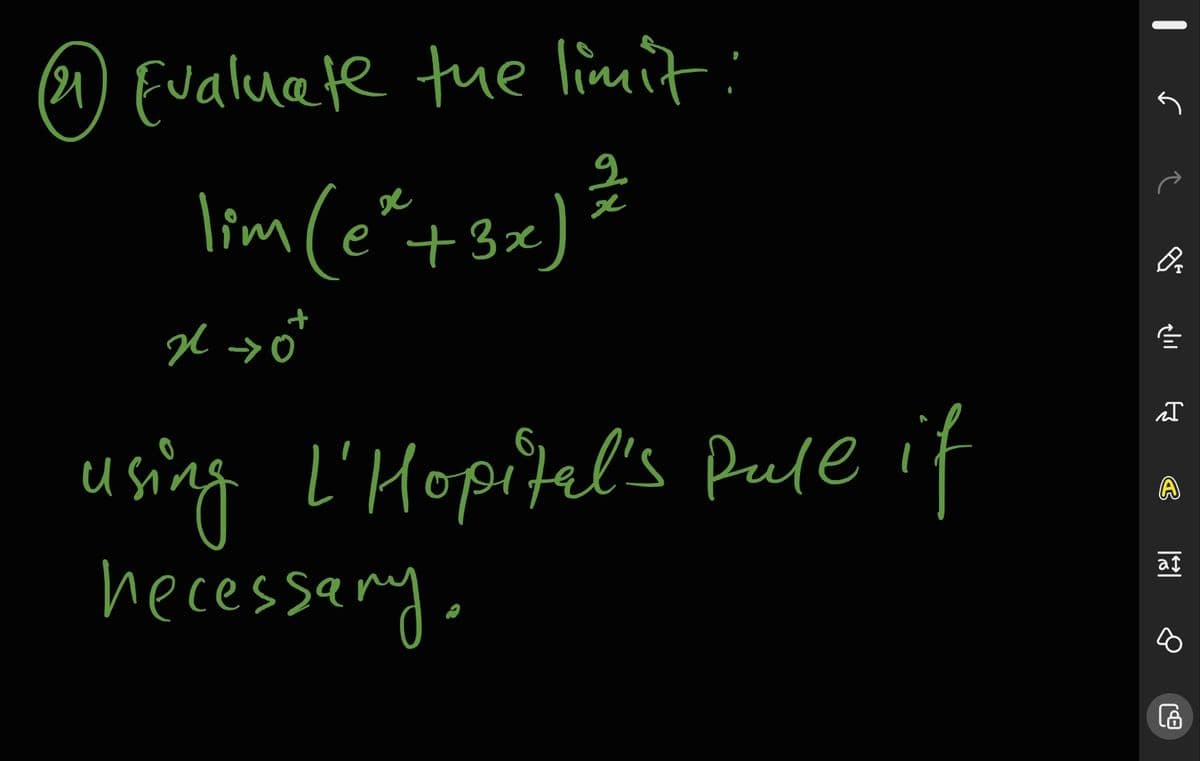 (21) Evaluate the limit:
lim (e^x + 3x)^(9/x)
x → 0⁺
using L'Hopital's Rule if
necessary.